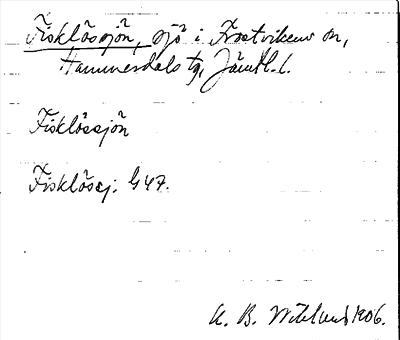 Fisklössjön, sjö i Frostvikens sn,
Hammerdals tg, Jämtl. l.
Fisklössjön
Fisklössj. G 47.
K. B. Wiklund 1906.